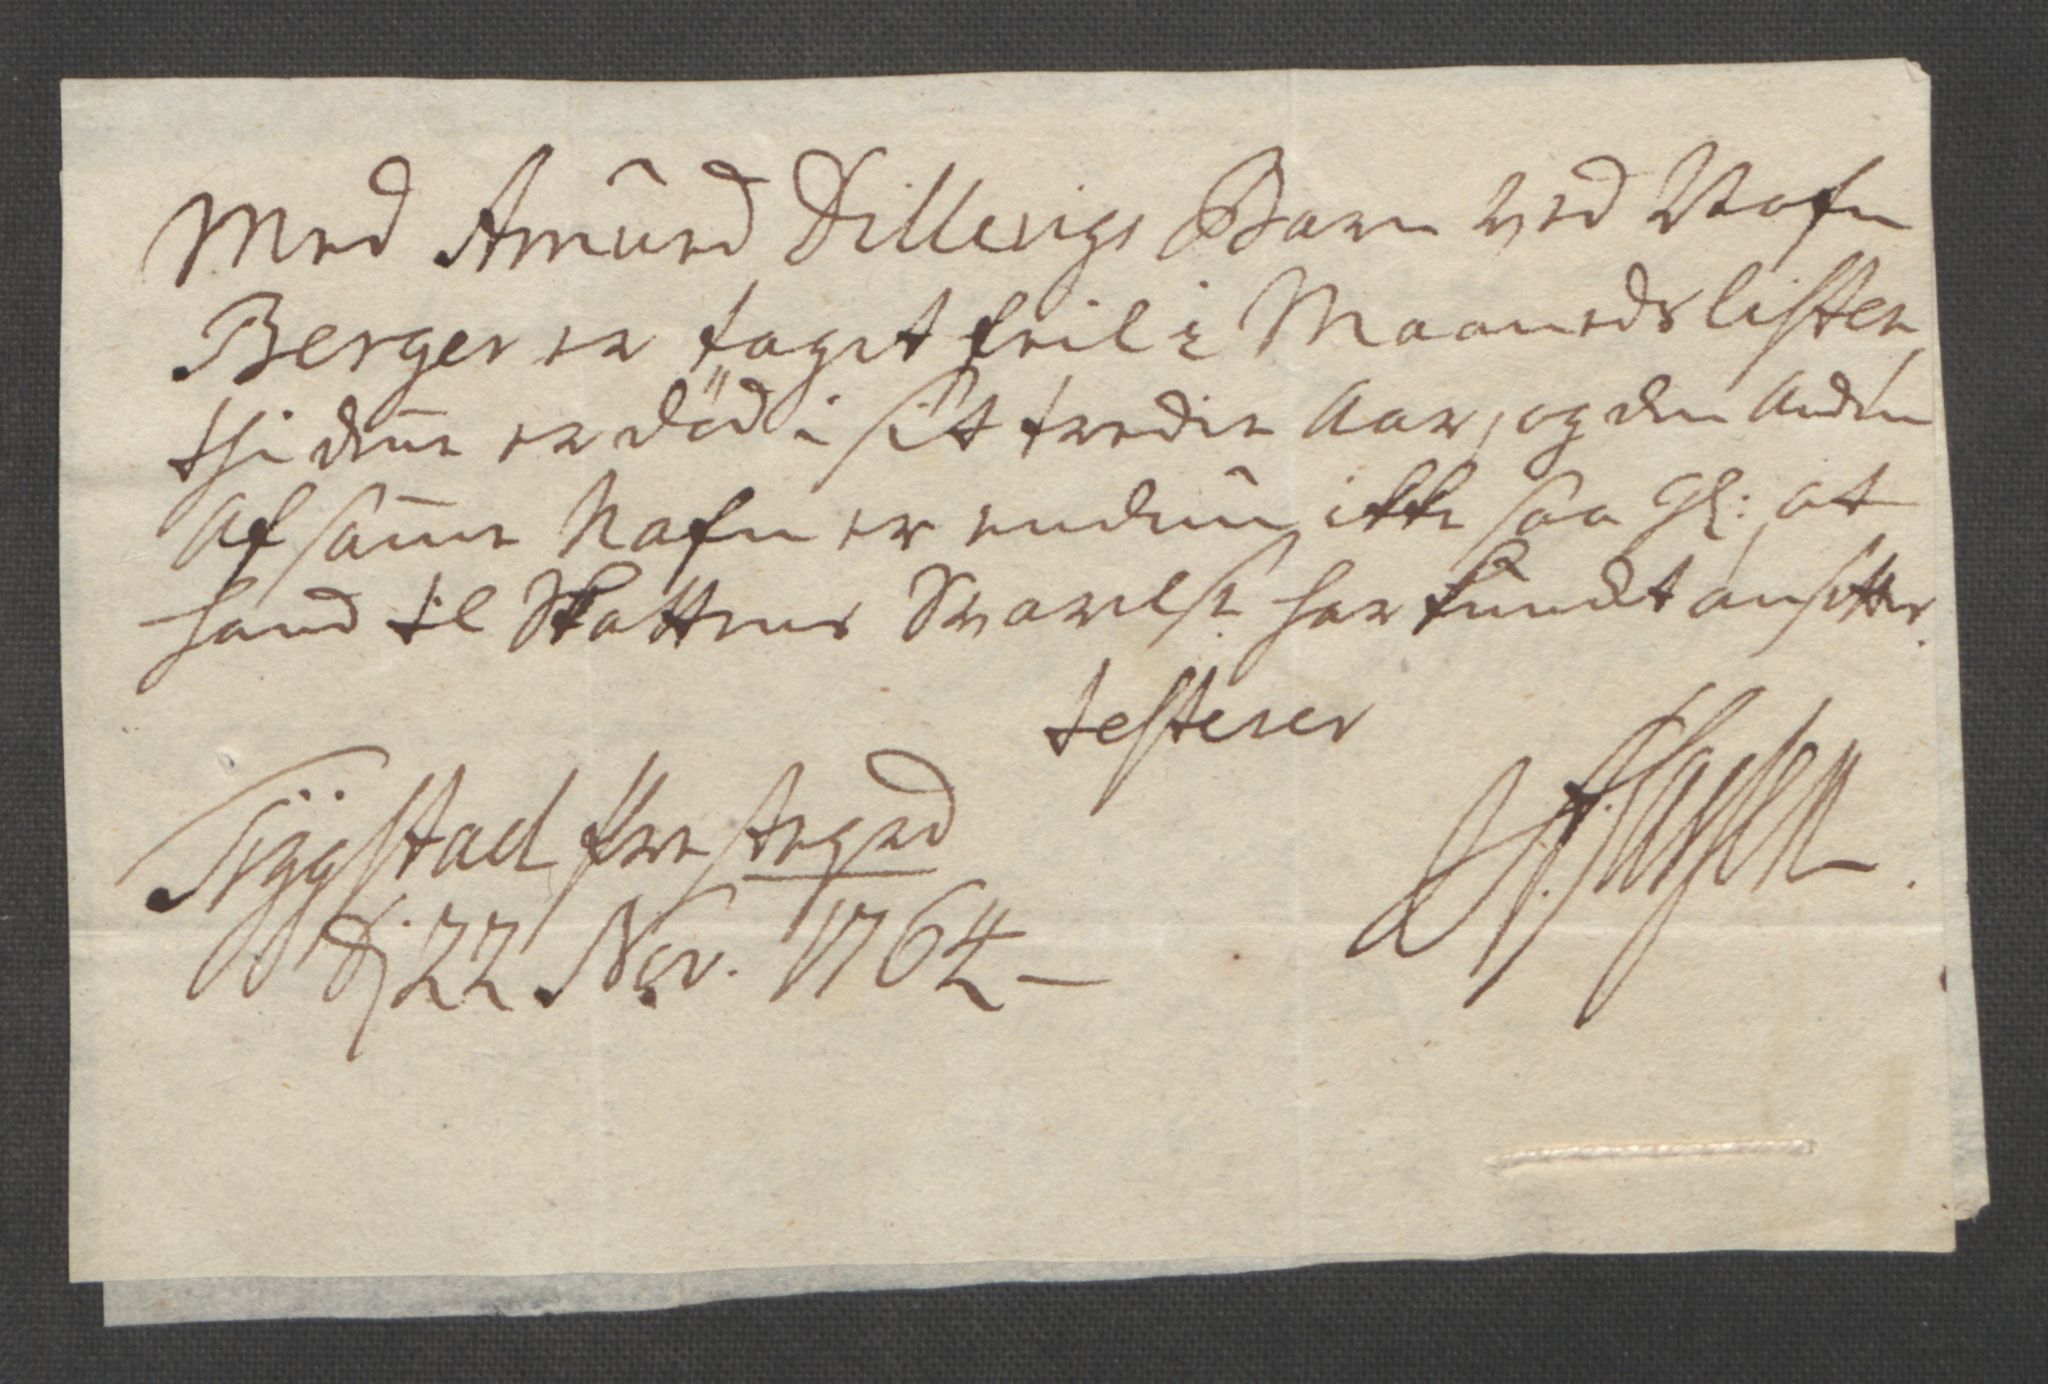 Med Amund Dillevigs Barn ved Nafn
Berger er taget feil i Maanedslisten,
thi denne er död i sit tredie Aar, og den Anden
Af samme Nafn er endnu ikke saa gl: at
hand til Skattens Svarelse har kundt ansettes.
testerer
Nÿgstad Prestegrd
d: 22 Nov. 1764 —